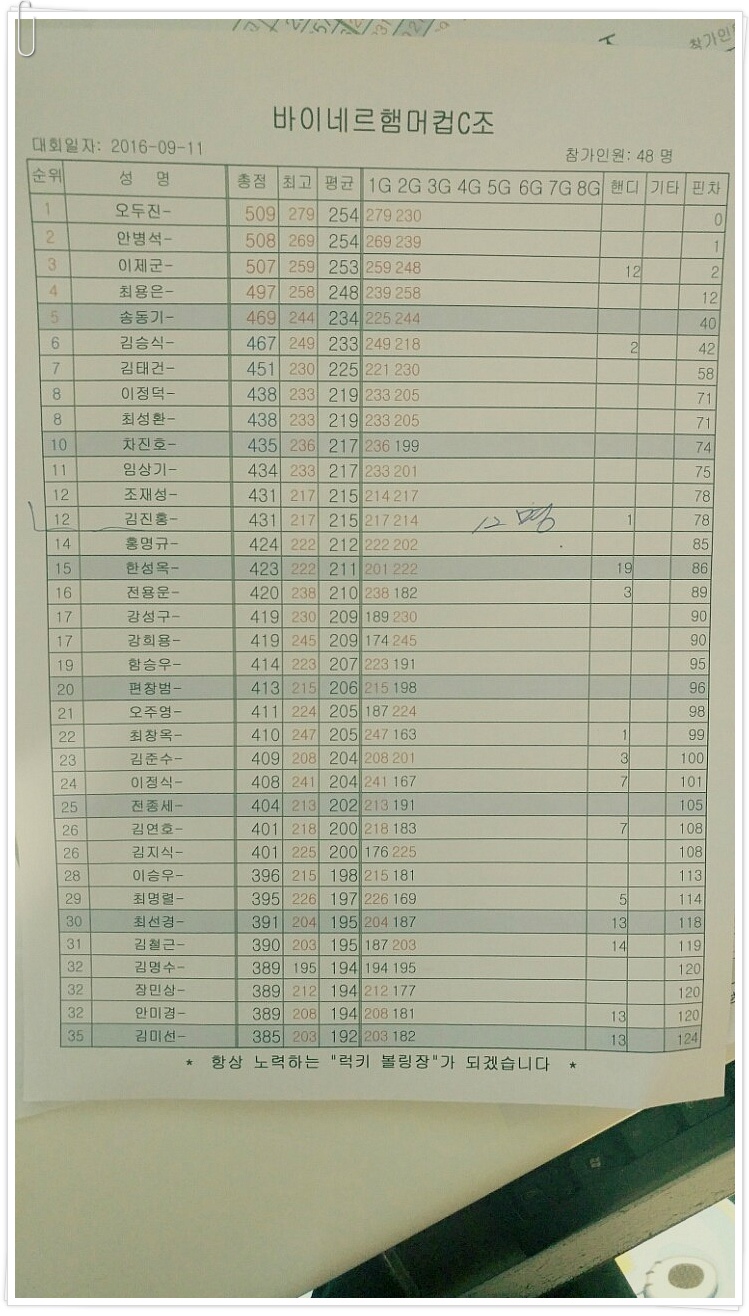 바이네르햄머컵C조
대회일자: 2016-09-11 참가인원: 48 명
순위 성 명 총점 최고 평균 1G 2G 3G 4G 5G 6G 7G 8G 핸디 기타 핀차
1 오두진- 509 279 254 279 230 0
2 안병석- 508 269 254 269 239 1
3 이제군- 507 259 253 259 248 12 2
4 최용은- 497 258 248 239 258 12
5 송동기- 469 244 234 225 244 40
6 김승식- 467 249 233 249 218 2 42
7 김태건- 451 230 225 221 230 58
8 이정덕- 438 233 219 233 205 71
8 최성환- 438 233 219 233 205 71
10 차진호- 435 236 217 236 199 74
11 임상기- 434 233 217 233 201 75
12 조재성- 431 217 215 214 217 78
12 김진홍- 431 217 215 217 214 12 명 1 78
14 홍명규- 424 222 212 222 202 85
15 한성옥- 423 222 211 201 222 19 86
16 전용운- 420 238 210 238 182 3 89
17 강성구- 419 230 209 189 230 90
17 강희용- 419 245 209 174 245 90
19 함승우- 414 223 207 223 191 95
20 편창범- 413 215 206 215 198 96
21 오주영- 411 224 205 187 224 98
22 최창옥- 410 247 205 247 163 1 99
23 김준수- 409 208 204 208 201 3 100
24 이정식- 408 241 204 241 167 7 101
25 전종세- 404 213 202 213 191 105
26 김연호- 401 218 200 218 183 7 108
26 김지식- 401 225 200 176 225 108
28 이승우- 396 215 198 215 181 113
29 최명렬- 395 226 197 226 169 5 114
30 최선경- 391 204 195 204 187 13 118
31 김철근- 390 203 195 187 203 14 119
32 김명수- 389 195 194 194 195 120
32 장민상- 389 212 194 212 177 120
32 안미경- 389 208 194 208 181 13 120
35 김미선- 385 203 192 203 182 13 124
* 항상 노력하는 "럭키 볼링장"가 되겠습니다 *